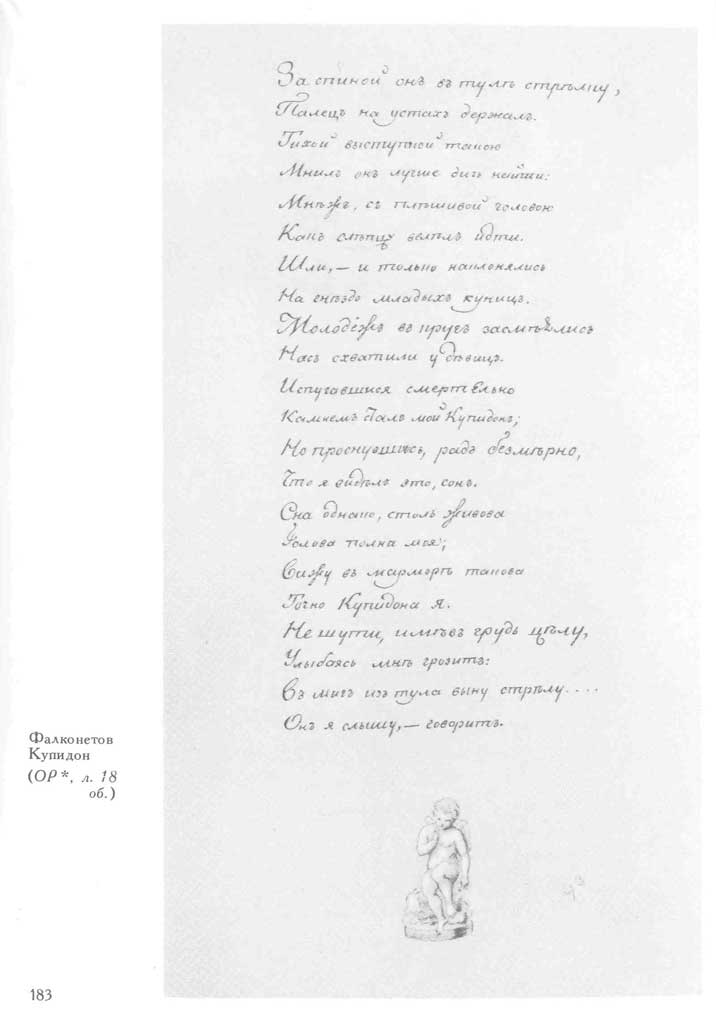 За спиной онъ въ тулѣ стрѣлцу,
Палецъ на устахъ держалъ.
Тихой выступкой такою
Мнилъ онъ лучше дичь найти:
Мнѣжъ, съ плѣшивой головою
Какъ слѣпцу велѣлъ идти.
Шли, — и только наклонялись
На гнѣздо младыхъ куницъ.
Молодёжъ вкругъ засмѣялись
Насъ схватили у дѣвицъ.
Испугавшися смертельно
Камнемъ палъ мой Купидонъ;
Но проснувшись, радъ безмѣрно,
Что я видѣлъ это, сонъ.
Сна однако, столь живова
Голова полна моя;
Вижу въ марморѣ такова
Точно Купидона я.
Не шути, имѣвъ грудь цѣлу,
Улыбаясь мнѣ грозитъ:
Въ мигъ изъ тула выну стрѣлу....
Онъ я слышу, — говоритъ.
Фалконетов
Купидон
(ОР*, л. 18
об.)
183